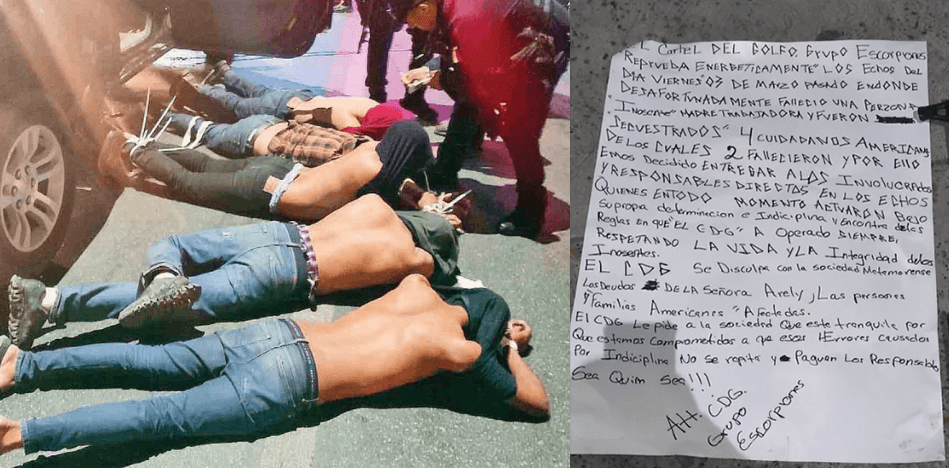 EL Cartel DEL GOLFO Grupo Escorpiones
REPRUEBA ENERGETICAMENTE" LOS Echos DEL
DIA VIERNES" 03 DE MARZO PASADO ENDONDE
DESAFORTUNADAMENTE Fallecio UNA PERZONA
"Inosente" MADRE TRABAJADORA Y FUERON
SECUESTRADOS" 4 CUIDADANOS AMERICANOS
DE LOS CUALES 2 FALLECIERON Y POR ELLO
EMOS Decidido ENTREGAR A LOS INVOLUCRADOS
Y RESPONSABLES DIRECTOS EN LOS ECHOS
QUIENES ENTODO MOMENTO ACTUARON BAJO
Su propia determinacion e Indiciplina y Encontra delas
Reglas en que "EL CDG" A Operado SIEMPRE,
RESPETANDO LA VIDA Y LA Integridad delos
Inosentes.
EL CDG Se Disculpa con la sociedad Matamorense
Los Deudos DE LA SEÑORA Arely, Las personas
Y "Familias Americanes" Afectadas.
El CDG Le pide a la sociedad Que este tranquila por
Que estamos comprometidos a que esos "Errores causados
Por Indiciplina No se repita y Paguen Los Responsables
Sea Quim Sea!!!
Att. CDG.
Grupo
Escorpiones